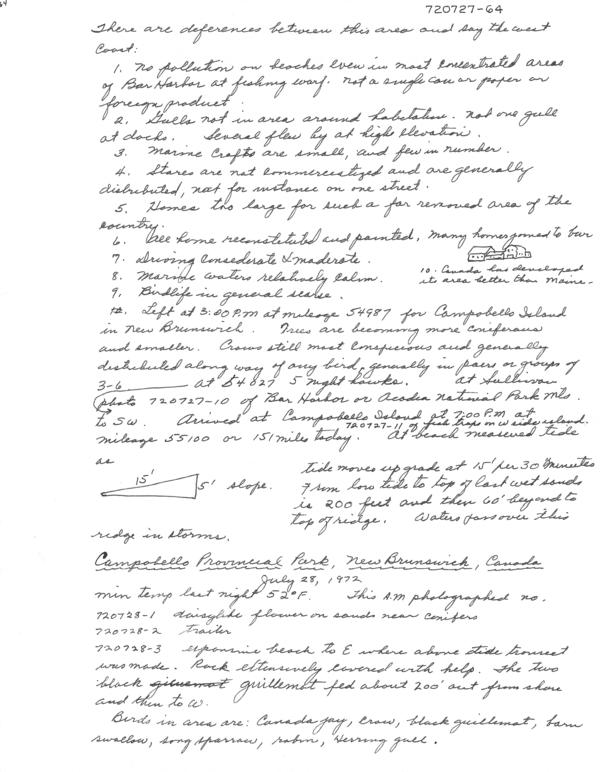 720727-64
There are deferences between this area and say the west
Coast:
1. No pollution on beaches even in most concentrated areas
of Bar Harbor at fishing warf. Not a single can or paper or
foreign product.
2. Gulls not in area around habitation. Not one gull
at docks. Several flew by at high elevation.
3. Marine Crafts are small, and few in number.
4. Stores are not commercialized and are generally
distributed, not for instance on one street.
5. Homes too large for such a far removed area of the
country.
6. All home reconstituted and painted, many homes joined to barn
7. Driving considerate & moderate.
8. Marine waters relatively calm.
9. Birdlife in general scarse.
10. Canada has developed
it area better than Maine.
Left at 3:00 P.M at mileage 54987 for Campobello Island
in New Brunswick. Trees are becoming more coniferous
and smaller. Crows still most conspicious and generally
distributed along way of any bird, generally in pairs or groups of
3-6 at 54027 5 night hawks. At Sullivan
photo 720727-10 of Bar Harbor or Acadia National Park mts.
to SW. Arrived at Campobello Island at 7:00 P.M at
720727-11 of fish traps on W side island.
mileage 55100 or 151 miles today. At beach measured tide
as
15' 5' slope.
tide moves up grade at 15' per 30 minutes
From low tide to top of last wet sands
is 200 feet and then 60' beyond to
top of ridge. Waters pass over this
ridge in storms.
Campobello Provincial Park, New Brunswick, Canada
July 28, 1972
min temp last night 52°F. This A.M photographed no.
720728-1 daisylike flower on sands near conifers
720728-2 trailer
720728-3 expansive beach to E where above tide transect
was made. Rock extensively covered with kelp. The two
black guillemot fed about 200' out from shore
and then to W.
Birds in area are: Canada jay, crow, black guillemot, barn
swallow, song sparrow, robin, Herring gull.